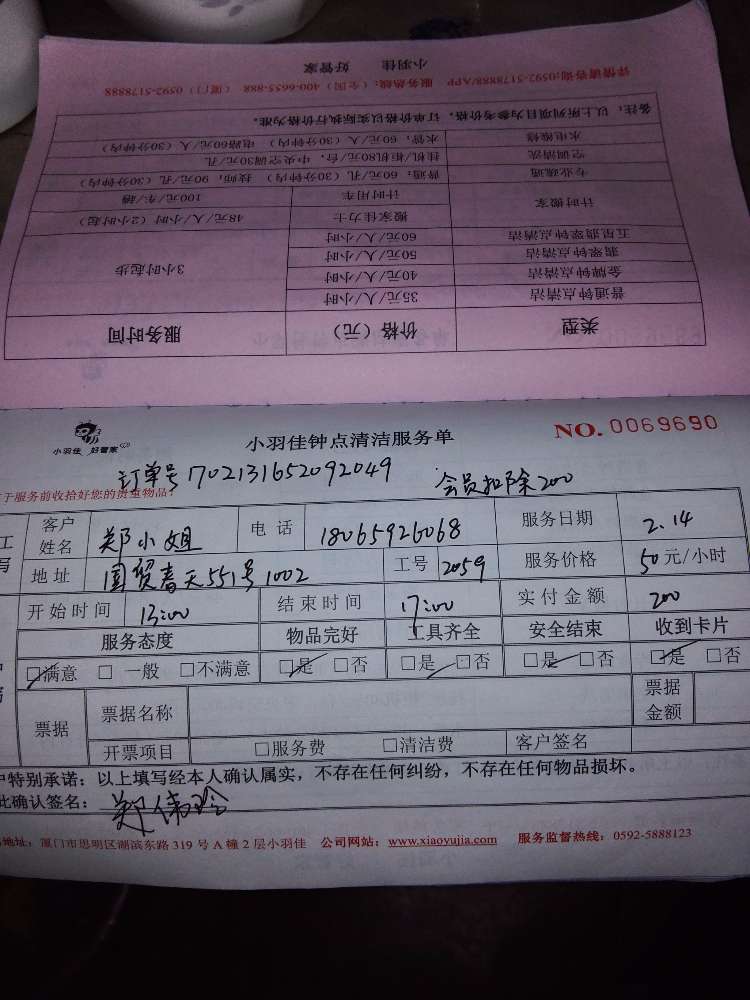 小羽佳 好管家
详情请咨询:0592-5178888/APP 服务热线:(全国)400-6655-888 (厦门)0592-5178888
类型 价格(元) 服务时间
普通钟点清洁 35元/人/小时 3小时起步
金牌钟点清洁 40元/人/小时
翡翠钟点清洁 50元/人/小时
五星翡翠钟点清洁 60元/人/小时
计时搬家 搬家佳力士 48元/人/小时(2小时起)
计时用车 100元/车/趟
专业疏通 普通:60元/孔(30分钟内) 技师:90元/孔(30分钟内)
空调清洗 挂机/柜机80元/台,中央空调30元/孔
水电维修 水管:60元/人(30分钟内) 电路60元/人(30分钟内)
备注:以上所列项目为参考价格,订单价格以实际执行价格为准。
小羽佳 好管家
小羽佳钟点清洁服务单
NO. 0069690
订单号 1702131652092049 会员扣除200
于服务前收拾好您的贵重物品!
客户姓名 郑小姐 电话 18065926068 服务日期 2.14
地址 国贸春天551号1002 工号 2059 服务价格 50元/小时
开始时间 13:00 结束时间 17:00 实付金额 200
服务态度 物品完好 工具齐全 安全结束 收到卡片
☑满意 □一般 □不满意 ☑是 □否 □是 □否 □是 □否 ☑是 □否
票据 票据名称 票据金额
开票项目 □服务费 □清洁费 客户签名
户特别承诺:以上填写经本人确认属实,不存在任何纠纷,不存在任何物品损坏。
此确认签名: 郑伟玲
地址:厦门市思明区湖滨东路319号A幢2层小羽佳 公司网站:www.xiaoyujia.com 服务监督热线:0592-5888123